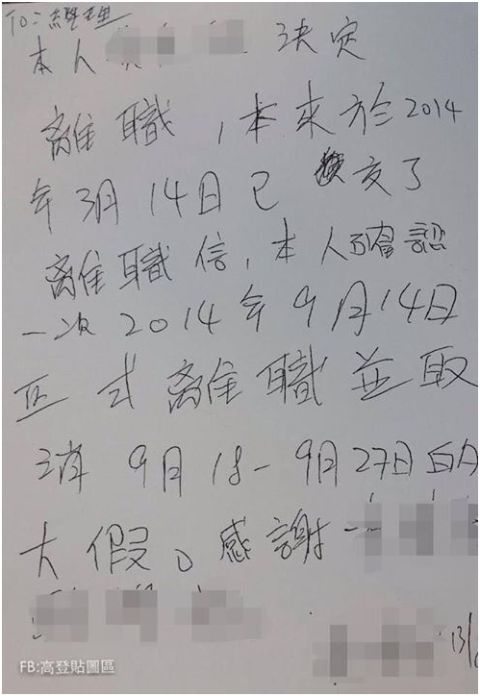 TO:經理
本人 決定
離職,本來於2014
年3月14日已 交了
離職信,本人確認
一次2014年9月14日
正式離職並取
消9月18-9月27日的
大假。感謝
13/
FB:高登貼圖區